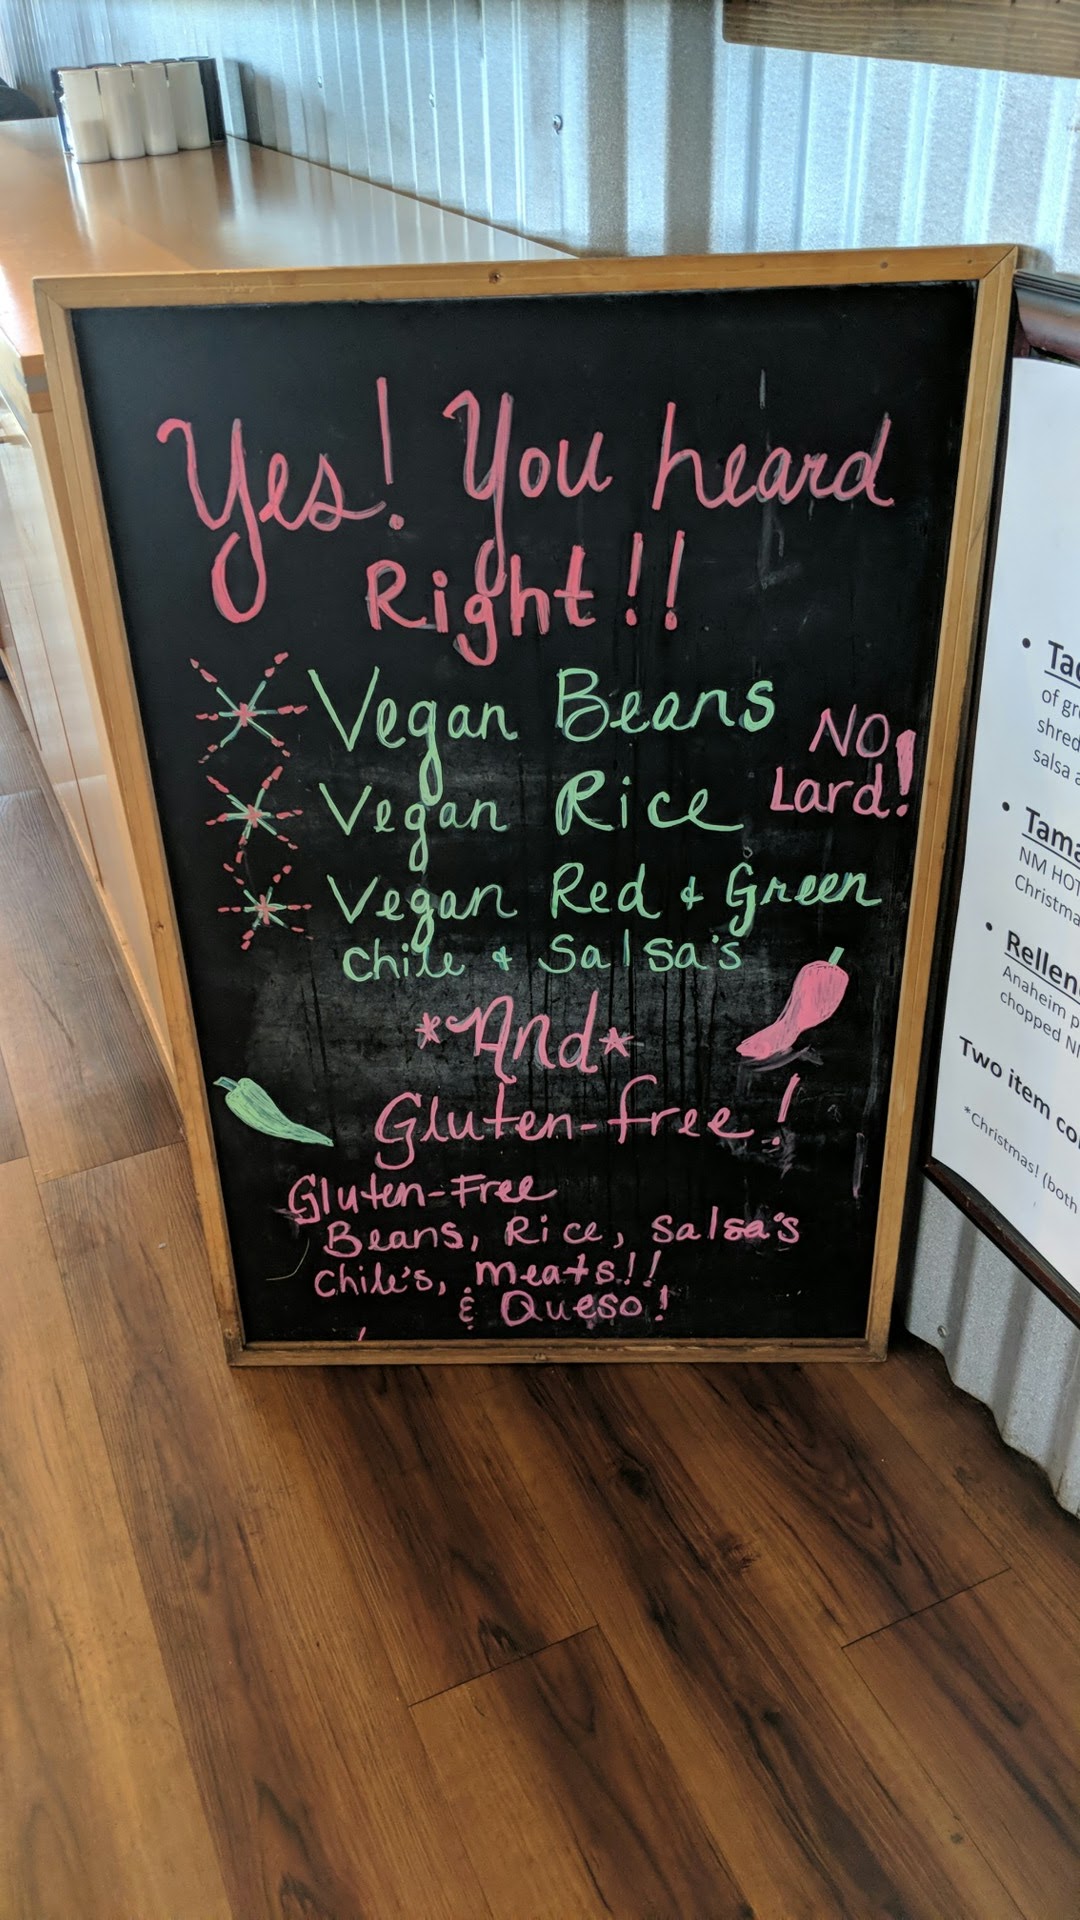 Yes! You heard
Right!!
Vegan Beans
Vegan Rice
NO
Lard!
Vegan Red & Green
chile & Salsa's
*And*
Gluten-free!
Gluten-Free
Beans, Rice, Salsa's
Chile's, meats!!
& Queso!
• Tac
of gr
shred
salsa a
• Tama
NM HOT
Christma
• Rellen
Anaheim p
chopped N
Two item co
*Christmas! (both